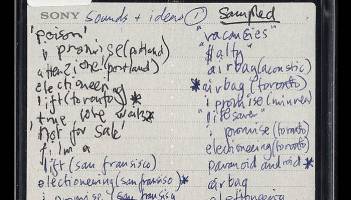 SONY sounds + ideas ① Sampled
'Poison'
i promise (portland)
attenzione! (portland)
electioneering
lift (toronto) *
true love waits *
not for sale!
f.i.m.a
lift (san fransisco)
electioneering (san fransisco) *
i promise (san fransisco
"vacancies"
"Nalty"
airbag (acoustic)
* airbag (toronto)
i promise (
"lifesaver"
i promise (toronto)
electioneering (toronto)
paranoid android *
airbag
electioneering